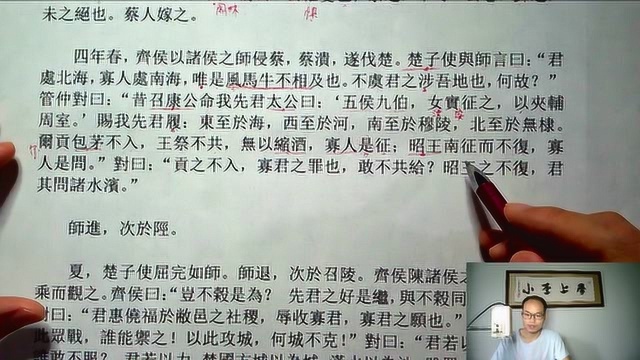 未之絕也。蔡人嫁之。
四年春，齊侯以諸侯之師侵蔡，蔡潰，遂伐楚。楚子使與師言曰：“君
處北海，寡人處南海，唯是風馬牛不相及也。不虞君之涉吾地也，何故？”
管仲對曰：“昔召康公命我先君太公曰：‘五侯九伯，女實征之，以夾輔
周室。’賜我先君履：東至於海，西至於河，南至於穆陵，北至於無棣。
爾貢包茅不入，王祭不共，無以縮酒，寡人是征；昭王南征而不復，寡
人是問。”對曰：“貢之不入，寡君之罪也，敢不共給？昭王之不復，君
其問諸水濱。”
師進，次於陘。
夏，楚子使屈完如師。師退，次於召陵。齊侯陳諸侯之
乘而觀之。齊侯曰：“豈不穀是為？ 先君之好是繼，與不穀同
對曰：“君惠僥福於敝邑之社稷，辱收寡君，寡君之願也。”
此眾戰，誰能禦之！以此攻城，何城不克！”對曰：“君若以
小李上學